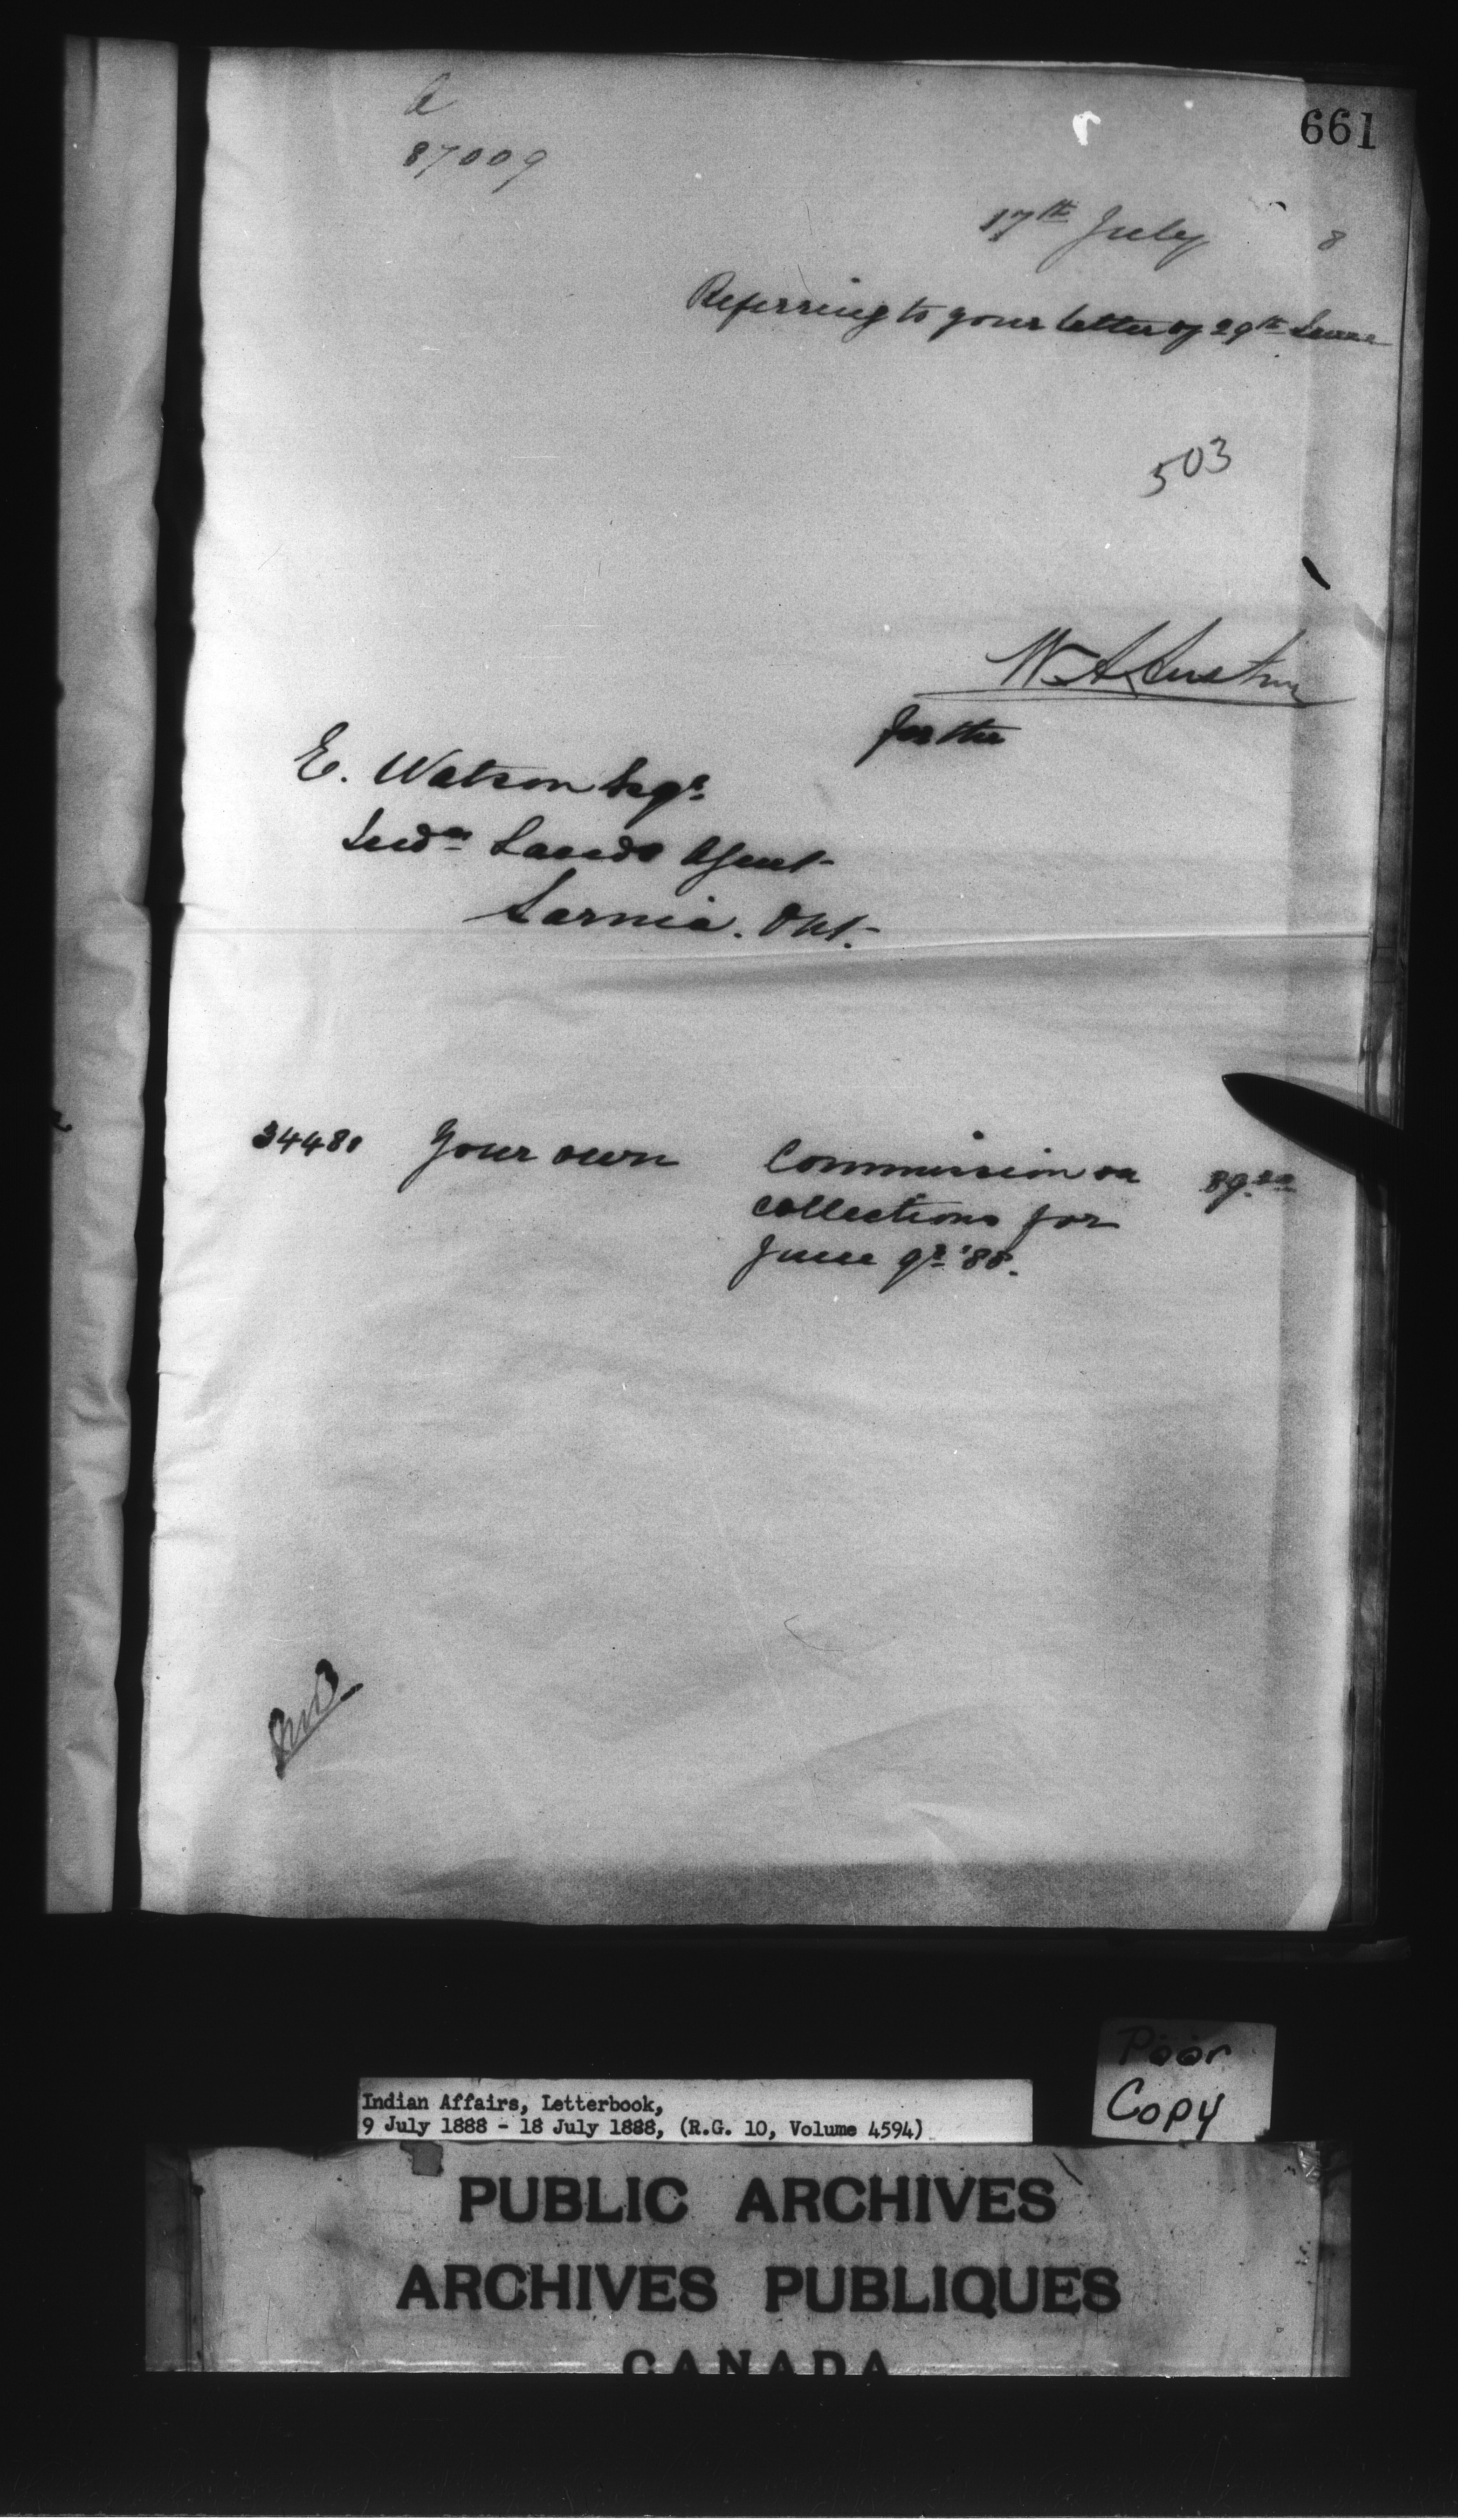 661
87009
17th July 8
Referring to your letter of 29th June
503
W A Austin
for the
E. Watson Esqr.
Indn Lands Agent
Sarnia. Ont.
34480 Your own Commission on 89.20
collections for
June qr '88.
Poor
Copy
Indian Affairs, Letterbook,
9 July 1888 - 18 July 1888, (R.G. 10, Volume 4594)
PUBLIC ARCHIVES
ARCHIVES PUBLIQUES
CANADA